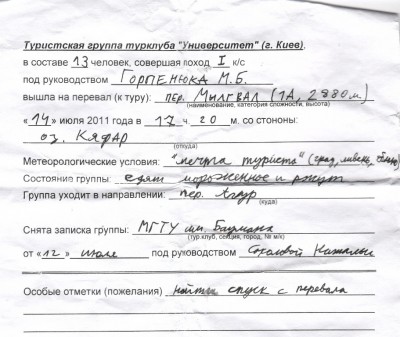 Туристская группа турклуба "Университет" (г. Киев).
в составе 13 человек, совершая поход I к/с
под руководством Горпенюка М.Б.
вышла на перевал (к туру): пер. Милгвал (1А, 2880 м)
(наименование, категория сложности, высота)
«14» июля 2011 года в 17 ч. 20 м. со стороны:
оз. Кяфар
(откуда)
Метеорологические условия: "мечта туриста" (град, ливень,
Состояние группы: едят мороженное и ржут
Группа уходит в направлении: пер. Агур
(куда)
Снята записка группы: МГТУ им. Баумана
(тур.клуб, секция, город, № м/к)
от «12» июля под руководством Соколовой Натальи
Особые отметки (пожелания) найти спуск с перевала